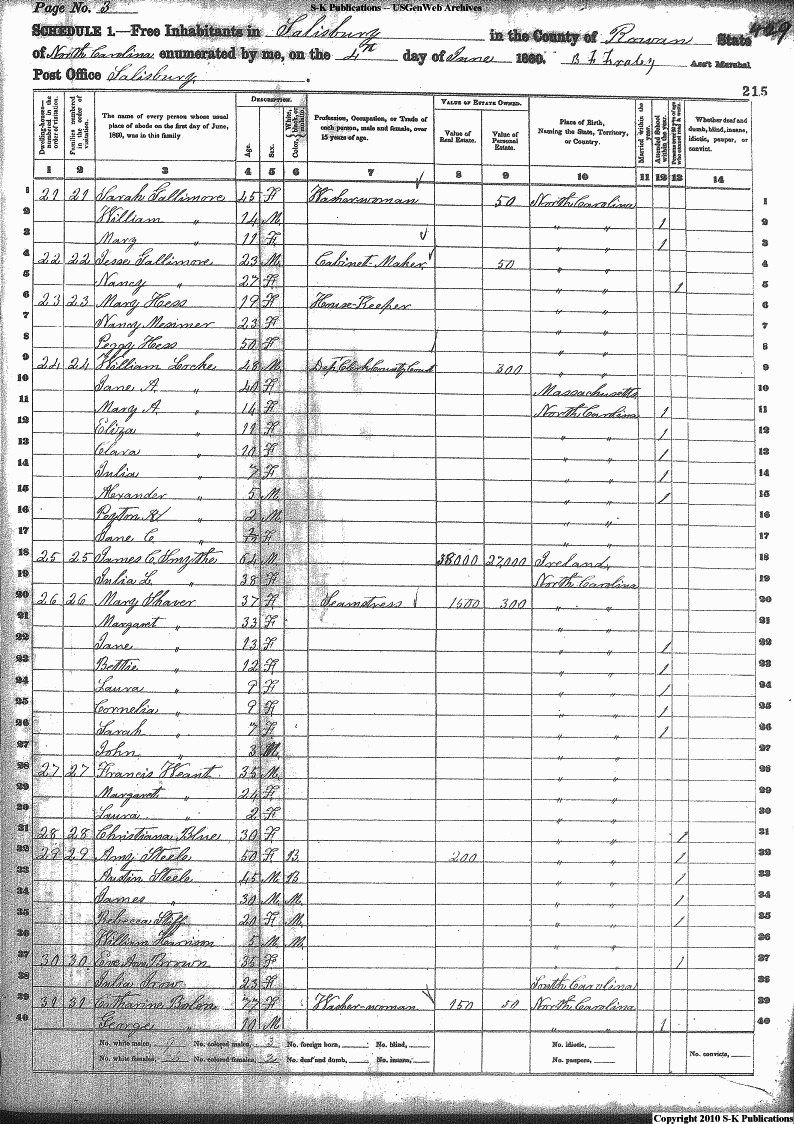 S-K Publications -- USGenWeb Archives
Page No. 3
SCHEDULE 1.—Free Inhabitants in Salisburg in the County of Rowan State
of North Carolina enumerated by me, on the 4th day of June 1860. B F Fraley Ass't Marshal
Post Office Salisburg.
215
Dwelling-houses— numbered in the order of visitation.
Families numbered in the order of visitation.
The name of every person whose usual place of abode on the first day of June, 1860, was in this family
DESCRIPTION.
Age. Sex. Color, White, black, or mulatto.
Profession, Occupation, or Trade of each person, male and female, over 15 years of age.
VALUE OF ESTATE OWNED.
Value of Real Estate. Value of Personal Estate.
Place of Birth, Naming the State, Territory, or Country.
Married within the year. Attended School within the year.
Whether deaf and dumb, blind, insane, idiotic, pauper, or convict.
1 2 3 4 5 6 7 8 9 10 11 12 13 14
1 21 21 Sarah Gallimore 45 F Washerwoman 50 North Carolina 1
2 William " 14 M " " / 2
3 Mary " 11 F " " / 3
4 22 22 Jesse Gallimore 23 M Cabinet-Maker 50 " " 4
5 Nancy " 27 F " " / 5
6 23 23 Mary Hess 19 F House-Keeper " " 6
7 Nancy Mesimer 23 F " " 7
8 Peggy Hess 50 F " " 8
9 24 24 William Locke 48 M Dep. Clerk County Court 300 " " 9
10 Jane A. " 40 F Massachusetts 10
11 Mary A. " 14 F North Carolina / 11
12 Eliza " 11 F " " / 12
13 Clara " 10 F " " / 13
14 Julia " 7 F " " / 14
15 Alexander " 5 M " " / 15
16 Peyton " 2 M " " 16
17 Jane C. " F " " 17
18 25 25 James C Smythe 64 M 38000 27,000 Ireland 18
19 Julia L. " 38 F North Carolina 19
20 26 26 Mary Shaver 37 F Seamstress 1500 300 " " 20
21 Margaret " 33 F " " 21
22 Jane " 13 F " " / 22
23 Bettie " 12 F " " / 23
24 Laura " 9 F " " / 24
25 Cornelia " 9 F " " / 25
26 Sarah " 7 F " " / 26
27 John " 3 M " " 27
28 27 27 Francis Weant 35 M " " 28
29 Margaret " 24 F " " 29
30 Laura " 2 F " " 30
31 28 28 Christiana Blue 30 F " " / 31
32 29 29 Amy Steele 50 F B 200 " " / 32
33 Austin Steele 45 M B " " / 33
34 James " 30 M M " " / 34
35 Rebecca 20 F M " " / 35
36 William Harrison 5 M M " " 36
37 30 30 Eve Ann Brown 35 F " " / 37
38 Julia Trow 23 F South Carolina 38
39 31 31 Catharine Bolen 77 F Washer-woman 150 50 North Carolina 39
40 George " 10 M " " / 40
No. white males, No. colored males, 3 No. foreign born, No. blind, No. idiotic,
No. white females, No. colored females, 2 No. deaf and dumb, No. insane, No. paupers, No. convicts,
Copyright 2010 S-K Publications